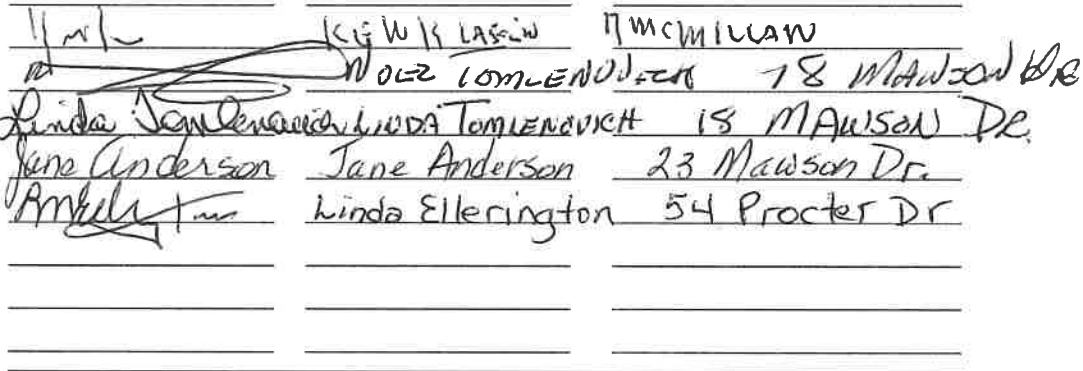 McMILLAN
TOMLENOVICH 18 MAWSON DR
Linda Tomlenovich LINDA TOMLENOVICH 18 MAWSON DR.
Jane Anderson Jane Anderson 23 Mawson Dr.
Linda Ellerington 54 Procter Dr